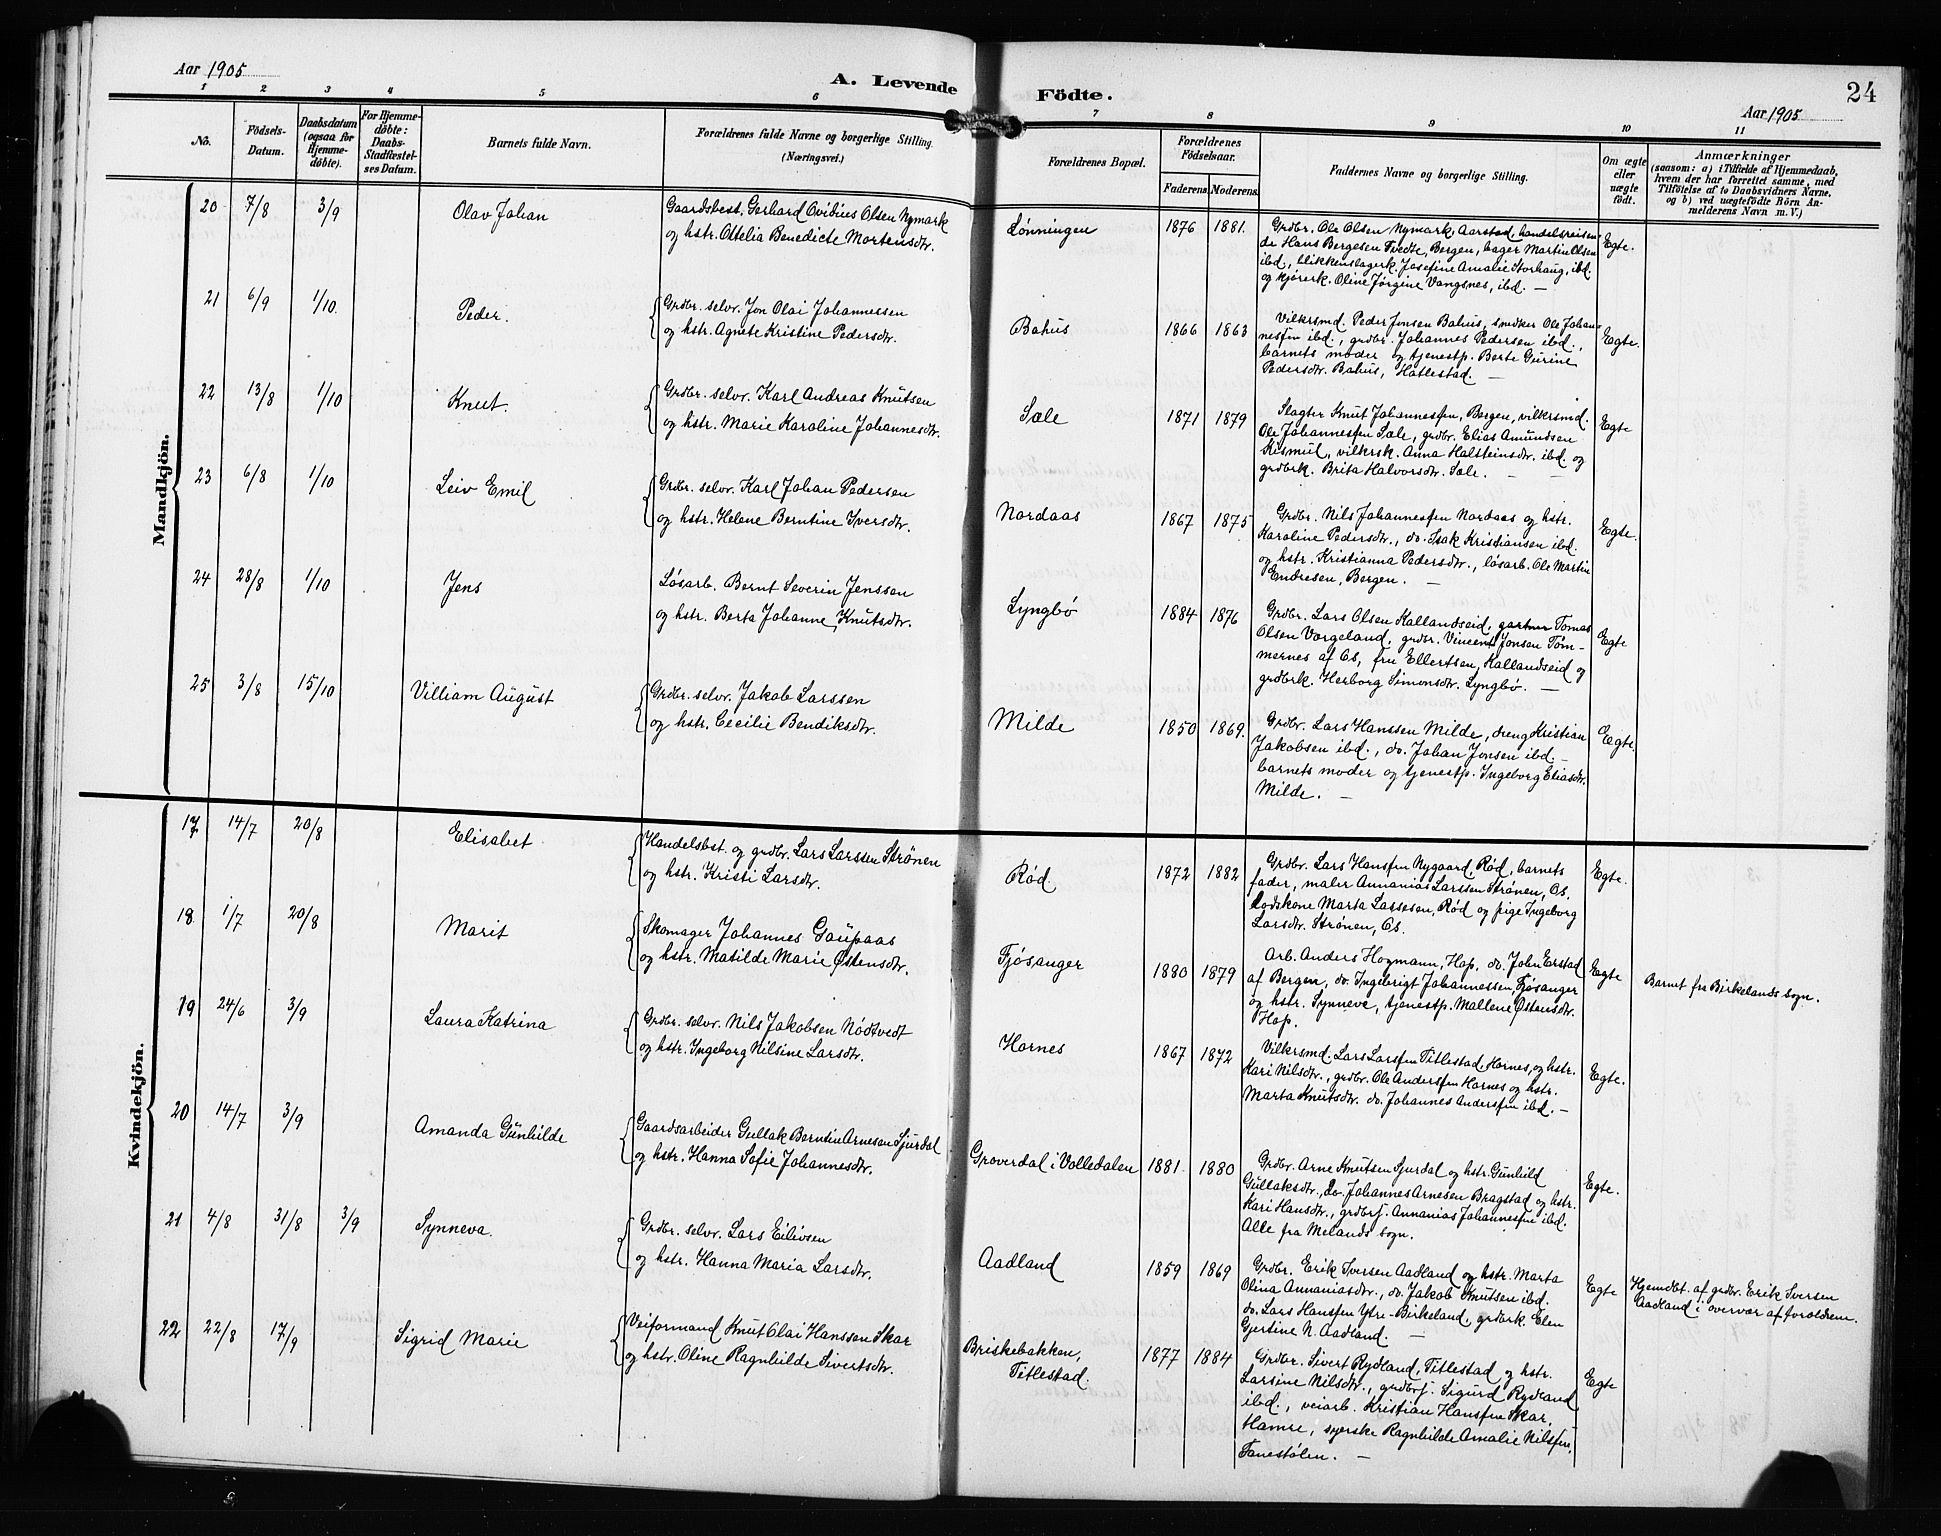 Aar 1905
A. Levende
Födte.
24
Aar 1905
1 2 3 4 5 6 7 8 9 10 11
No.
Födsels-
Datum.
Daabsdatum
(ogsaa for
Hjemme-
döbte).
For Hjemme-
döbte:
Daabs-
Stadfæstel-
ses Datum.
Barnets fulde Navn.
Forældrenes fulde Navne og borgerlige Stilling.
(Næringsvei.)
Forældrenes Bopæl.
Forældrenes
Födselsaar.
Faderens. Moderens.
Faddernes Navne og borgerlige Stilling.
Om ægte
eller
uægte
født.
Anmærkninger
(saasom: a) i Tilfælde af Hjemmedaab,
hvem der har forrettet samme, med
Tilføielse af to Daabsvidners Navne,
og b) ved uægtefödte Börn An-
melderens Navn m. V.)
Mandkjön.
20 7/8 3/9 Olav Johan
Gaardsbest. Gerhard Ovidius Olsen Nymark
og hstr. Ottelia Benedicte Mortensdtr.
Lønningen 1876 1881.
Grdbr. Ole Olsen Nymark, Aarstad, handelsreisen-
de Hans Bergesen Tvedte, Bergen, bager Martin Olsen
ibd., blikkenslagerk. Josefine Amalie Storhaug, ibd.
og kjørerk. Oline Jørgine Vangsnes, ibd. —
Egte.
21 6/9 1/10. Peder.
Grdbr. selv. Jon Olai Johannessen
og hstr. Agnete Kristine Pedersdtr.
Bahus 1866 1863
Vilkrsmd. Peder Jonsen Bahus, snedker Ole Johan-
nesfen ibd., grdbr. Johannes Pedersen ibd.,
barnets moder og tjenestp. Berte Gurine
Pedersdtr. Bahus, Hatlestad. —
Egte.
22 13/8 1/10 Knut.
Grdbr. selv. Karl Andreas Knutsen
og hstr. Marie Karoline Johannesdtr.
Sæle 1871 1879
Slagter Knut Johannesfen, Bergen, vilkrsmd.
Ole Johannesfen Sæle, grdbr. Elias Amundsen
Kismul, vilkrsk. Anna Halsteinsdtr. ibd. og
grdbrk. Brita Halvorsdtr. Sæle. — —
Egte
23 6/8 1/10 Leiv Emil
Grdbr. selv. Karl Johan Pedersen
og hstr. Helene Berntine Iversdtr.
Nordaas 1867 1875
Grdbr. Nils Johannesfen Nordaas og hstr.
Karoline Pedersdtr., do. Isak Kristiansen ibd.
og hstr. Kristianna Pedersdtr., løsarb. Ole Martin
Endresen, Bergen. —
Egte.
24 28/8 1/10 Jens
Løsarb. Bernt Severin Jenssen
og hstr. Berta Johanne Knutsdtr.
Lyngbø 1884 1876
Grdbr. Lars Olsen Kallandseid, gartner Tomas
Olsen Vorgeland, grdbr. Vincent Jonsen Tøm-
mernes af Os, fru Ellertsen, Kallandseid og
grdbrk. Herborg Simonsdtr. Lyngbø. —
Egte
25 3/8 15/10 Villiam August
Grdbr. selv. Jakob Larssen
og hstr. Cecilie Bendiksdtr.
Milde 1850 1869.
Grdbr. Lars Hanssen Milde, dreng Kristian
Jakobsen ibd., do. Johan Jonsen ibd. —
barnets moder og tjenestp. Ingeborg Eliasdtr.
Milde. —
Egte
Kvindekjön.
17 14/7 20/8 Elisabet
Handelsbst. og grdbr. Lars Larssen Strønen
og hstr. Kristi Larsdtr.
Rød. 1872 1882
Grdbr. Lars Hansfen Nygaard, Rød, barnets
fader, maler Annanias Larssen Strønen, Os.
Lodskone Marta Larssen, Rød og pige Ingeborg
Larsdtr. Strønen, Os.
Egte.
18 1/7 20/8 Marit
Skomager Johannes Gaupaas
og hstr. Matilde Marie Østensdtr.
Fjøsanger 1880 1879
Arb. Anders Hogmann, Hop, do. John Erstad
af Bergen, do. Ingebrigt Johannessen, Fjøsanger
og hstr. Synneve, tjenestp. Mallene Østensdtr.
Hop.
Egte
Barnet fra Birkelands sogn.
19 24/6 3/9 Laura Katrina
Grdbr. selv. Nils Jakobsen Nødtvedt
og hstr. Ingeborg Nilsine Larsdtr.
Hornes 1867 1872
Vilkrsmd. Lars Larsfen Titlestad, Hornes, og hstr.
Kari Nilsdtr., grdbr. Ole Andersfen Hornes og hstr.
Marta Knutsdtr. do. Johannes Andersfen ibd. —
Egte.
20 14/7 3/9 Amanda Gunhilde
Gaardsarbeider Gullak Berntin Arnesen Sjurdal
og hstr. Hanna Sofie Johannesdtr.
Groverdal i Volledalen 1881. 1880
Grdbr. Arne Knutsen Sjurdal og hstr. Gunhild
Gullaksdtr., do. Johannes Arnesen Bragstad og hstr.
Kari Hansdtr., grdbrs. Annanias Johannesfen ibd.
Alle fra Melands sogn.
Egte.
21 4/8 31/8 3/9 Synneva.
Grdbr. selv. Lars Eilivsen
og hstr. Hanna Maria Larsdtr.
Aadland 1859 1869
Grdbr. Erik Iversen Aadland og hstr. Marta
Olina Annaniasdtr., do. Jakob Knutsen ibd.
do. Lars Hansfen Ytre-Birkeland, grdbrk. Elen
Gjertine N. Aadland. —
Egte
Hjemdbt. af grdbr. Erik Iversen
Aadland i overvær af forældrene.
22 22/8 17/9 Sigrid Marie
Veiformand Knut Olai Hanssen Skar
og hstr. Oline Ragnhilde Sivertsdtr.
Briskebakken,
Titlestad. 1877 1884
Grdbr. Sivert Rydland, Titlestad og hstr.
Larsine Nilsdtr., grdbrs. Sigurd Rydland
ibd., veiarb. Kristian Hansfen Skar,
Hamre, syerske Ragnhilde Amalie Nilsfen,
Fanestølen. —
Egte